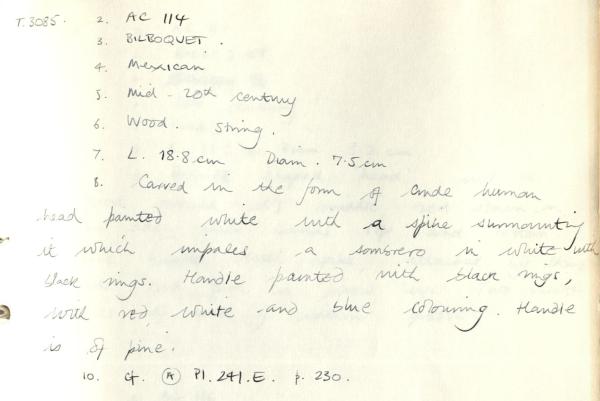 T.3085. 2. AC 114
3. BILBOQUET.
4. Mexican
5. Mid-20th century
6. Wood. String.
7. L. 18.8 cm Diam. 7.5 cm
8. Carved in the form of crude human
head painted white with a spike surmounting
it which impales a sombrero in white with
black rings. Handle painted with black rings,
with red, white and blue colouring. Handle
is of pine.
10. Cf. (A) Pl. 241.E. p. 230.